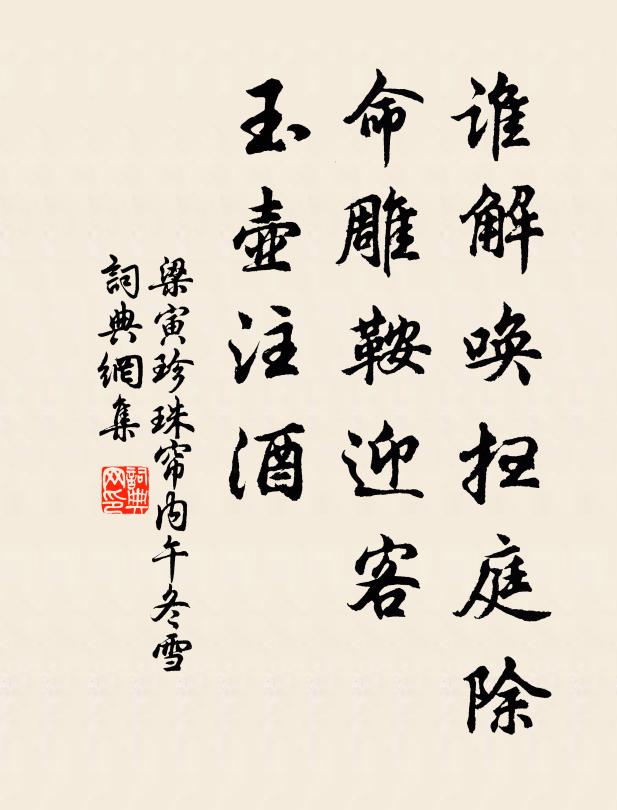 谁解唤扫庭除
命雕鞍迎客
玉壶注酒
梁寅珍珠帘内午冬雪
詞典網集
詞典网印